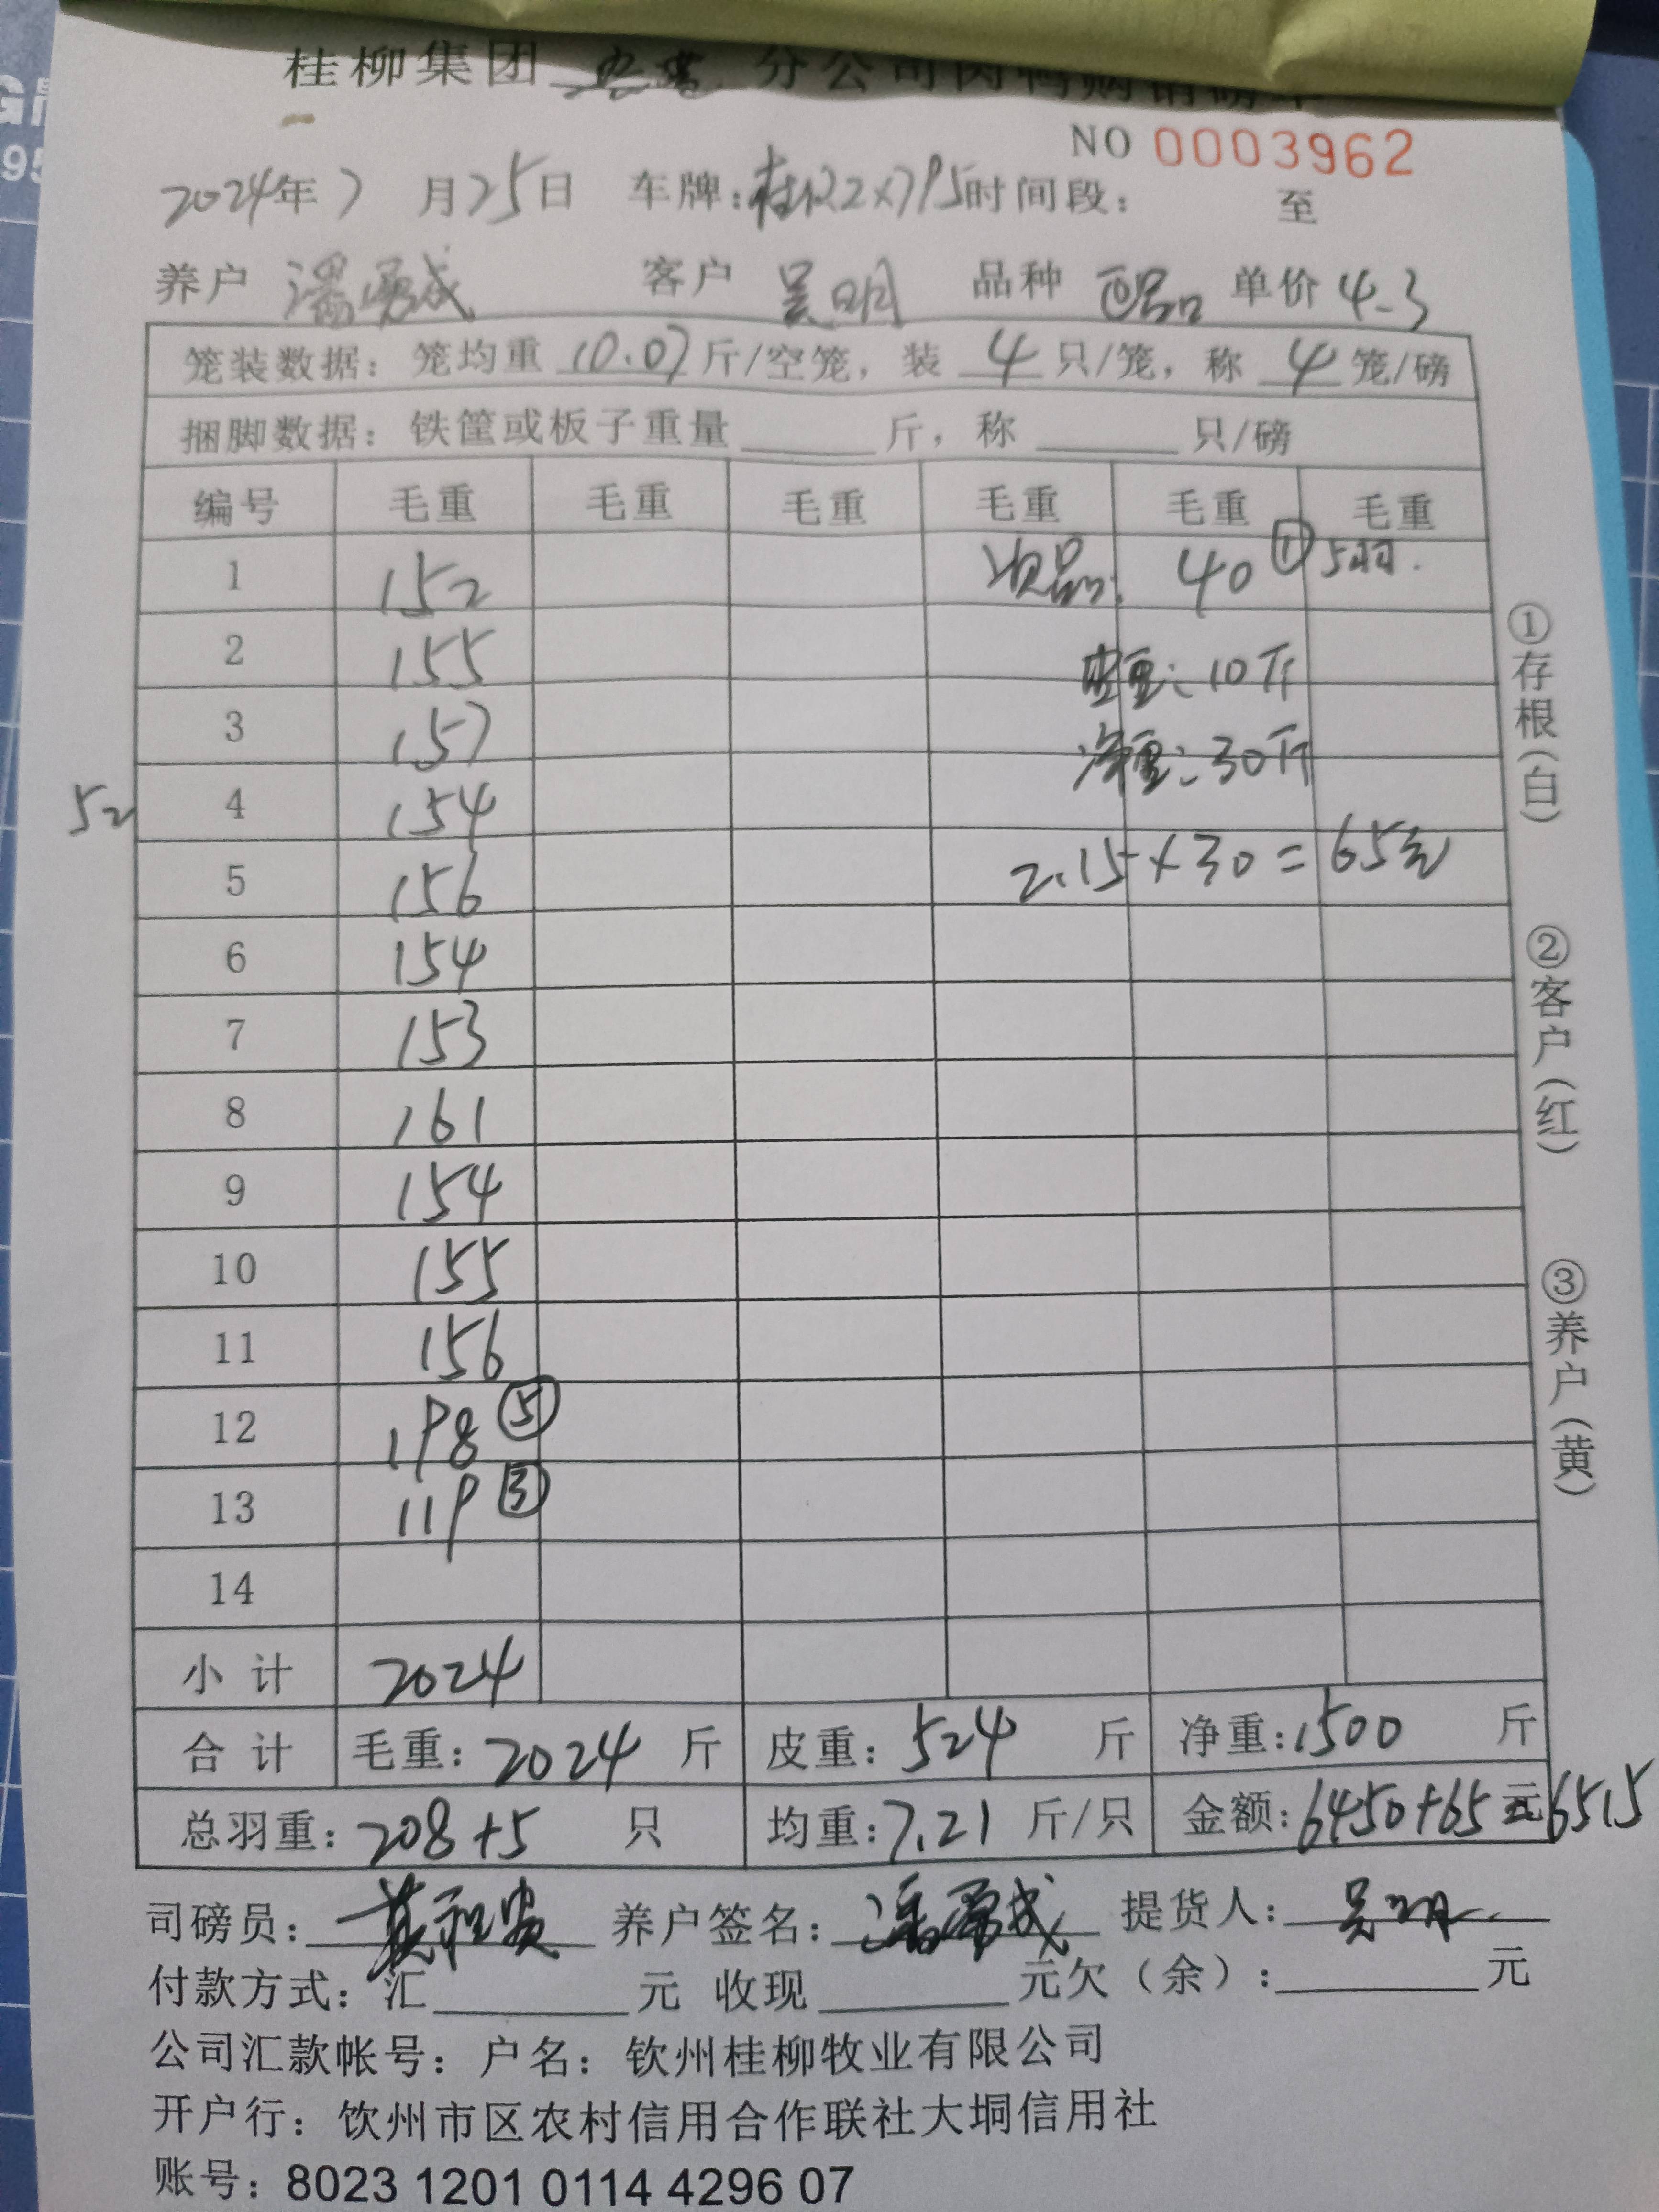 桂柳集团 分公司肉鸭购销磅单
NO 0003962
2024年7月25日 车牌: 时间段: 至
养户 潘勇成 客户 吴明 品种 西品 单价 4.3
笼装数据: 笼均重 10.07 斤/空笼, 装 4 只/笼, 称 4 笼/磅
捆脚数据: 铁筐或板子重量 斤, 称 只/磅
编号 毛重 毛重 毛重 毛重 毛重 毛重
1 152 次品: 40 ① 5羽.
2 155 皮重: 10斤
3 157 净重: 30斤
52 4 154
5 156 2.15×30=65元
6 154
7 153
8 161
9 154
10 155
11 156
12 198 ⑤
13 119 ③
14
小计 2024
合计 毛重: 2024 斤 皮重: 524 斤 净重: 1500 斤
总羽重: 208+5 只 均重: 7.21 斤/只 金额: 6450+65元 6515
司磅员: 养户签名: 潘勇成 提货人: 吴明
付款方式: 汇 元 收现 元欠(余): 元
公司汇款帐号: 户名: 钦州桂柳牧业有限公司
开户行: 钦州市区农村信用合作联社大垌信用社
账号: 8023 1201 0114 4296 07
①存根(白)
②客户(红)
③养户(黄)